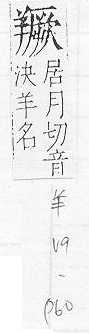 𦍕
居月切音
決羊名
羊
19
-
p60